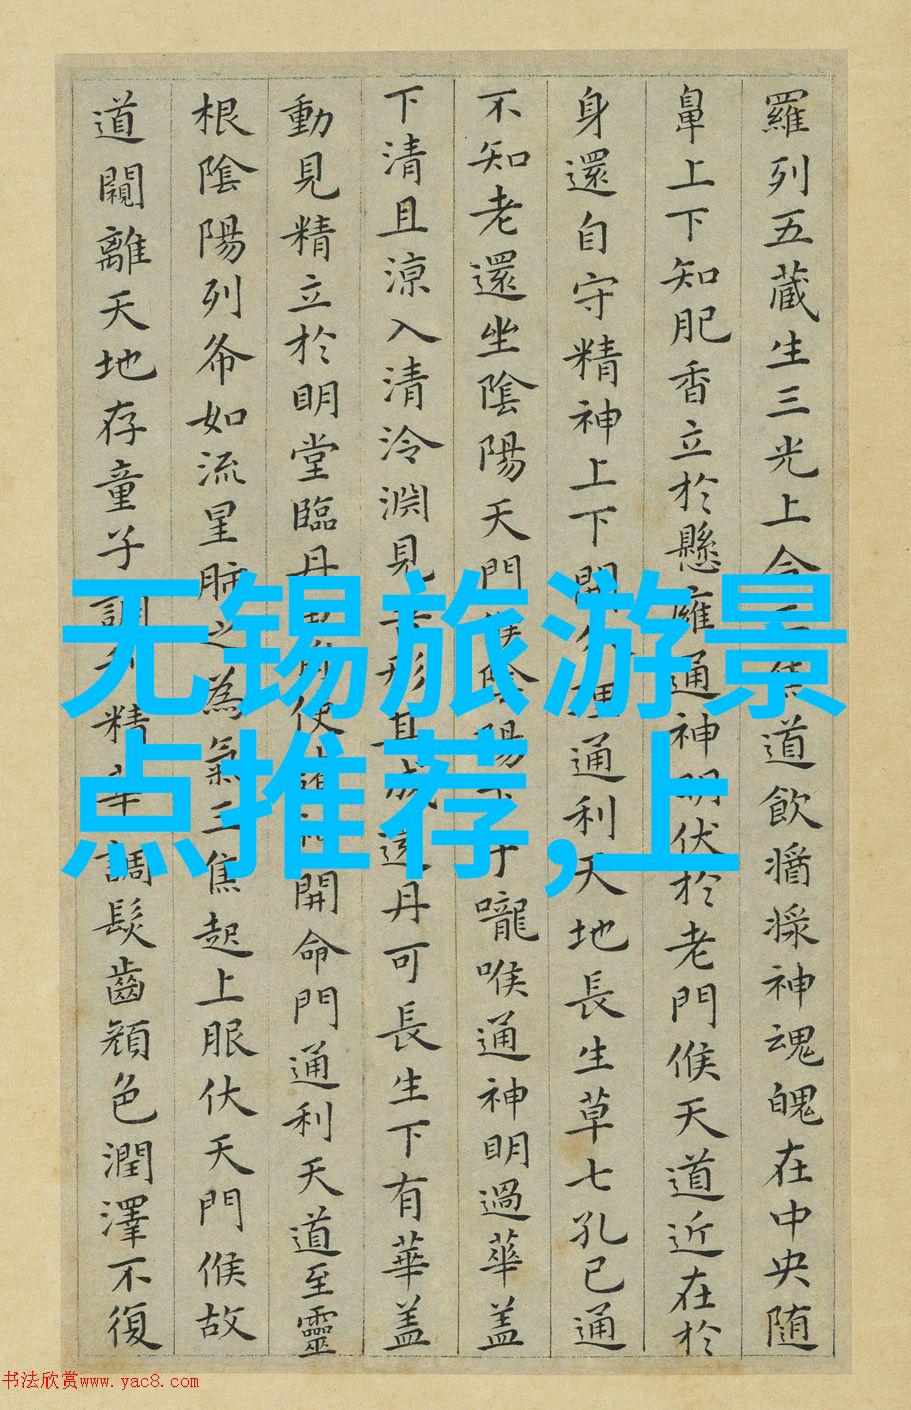 羅列五蔵生三光上合
道飲醤滌神魂魄在中央随
鼻上下知肥香立於懸癰通神明伏於老門候天道近在於
身還自守精神上下開
理通利天地長生草七孔已通
不知老還坐陰陽天門候陰陽下于嚨喉通神明過華盖
下清且涼入清泠渊見吾形其成還丹可長生下有華盖
動見精立於明堂臨丹
使
開命門通利天道至靈
根陰陽列布如流星肺之為氣三焦起上服伏天門候故
道闚離天地存童子調利精華調髮齒顔色潤澤不復
无锡旅游景
点推荐,上
书法欣赏www.yac8.com